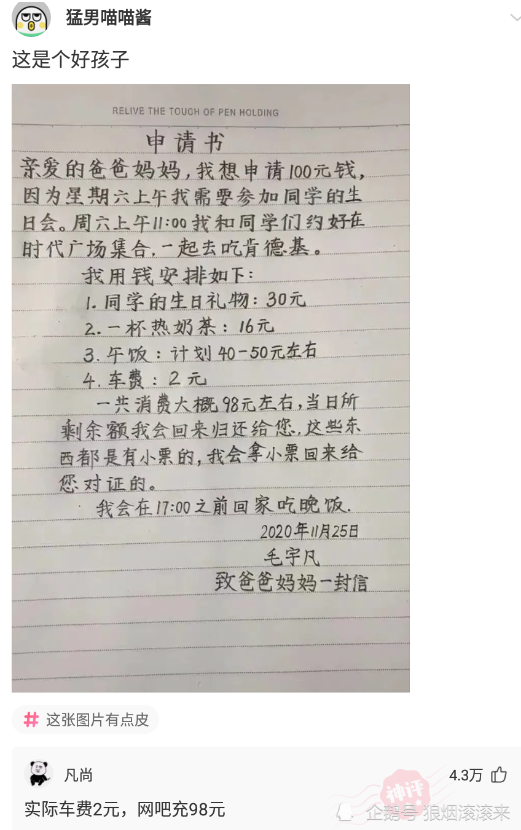 猛男喵喵酱
这是个好孩子
RELIVE THE TOUCH OF PEN HOLDING
申请书
亲爱的爸爸妈妈，我想申请100元钱，
因为星期六上午我需要参加同学的生
日会。周六上午11:00我和同学们约好在
时代广场集合，一起去吃肯德基。
我用钱安排如下：
1.同学的生日礼物：30元
2.一杯热奶茶：16元
3.午饭：计划40-50元左右
4.车费：2元
一共消费大概98元左右，当日所
剩余额我会回来归还给您，这些东
西都是有小票的，我会拿小票回来给
您对证的。
我会在17:00之前回家吃晚饭.
2020年11月25日
毛宇凡
致爸爸妈妈一封信
#这张图片有点皮
凡尚
4.3万
神评
实际车费2元，网吧充98元
企鹅号 狼烟滚滚来